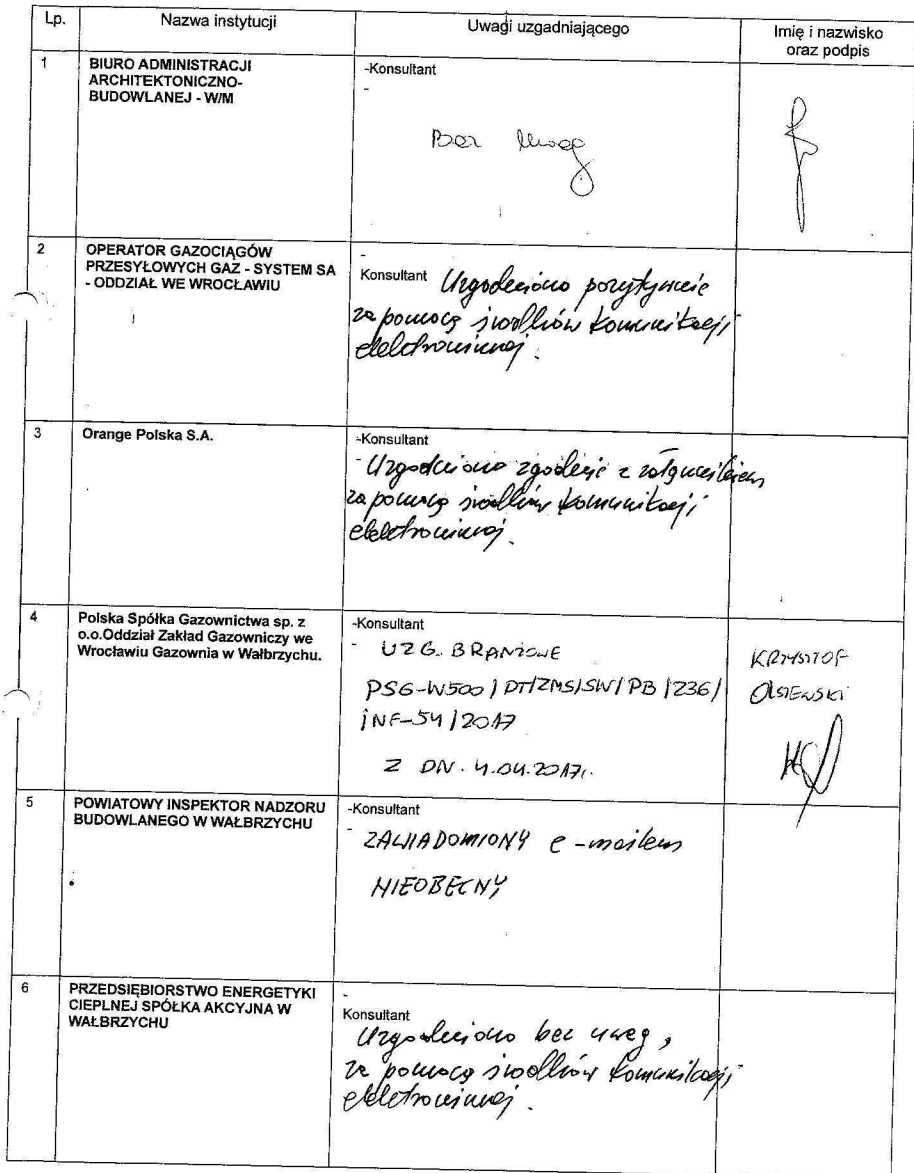 Lp.
Nazwa instytucji
Uwagi uzgadniającego
Imię i nazwisko
oraz podpis
1
BIURO ADMINISTRACJI
ARCHITEKTONICZNO-
BUDOWLANEJ - W/M
-Konsultant
-
Bez Uwag
2
OPERATOR GAZOCIĄGÓW
PRZESYŁOWYCH GAZ - SYSTEM SA
- ODDZIAŁ WE WROCŁAWIU
-
Konsultant Uzgodniono pozytywnie
za pomocą środków komunikacji
elektronicznej.
3
Orange Polska S.A.
-Konsultant
- Uzgodniono zgodnie z załącznikiem
za pomocą środków komunikacji
elektronicznej.
4
Polska Spółka Gazownictwa sp. z
o.o.Oddział Zakład Gazowniczy we
Wrocławiu Gazownia w Wałbrzychu.
-Konsultant
- UZG. BRANŻOWE
PSG-W500/DT/ZMS/SW/PB/236/
INF-54/2017
Z DN. 4.04.2017r.
KRZYSZTOF
OLSZEWSKI
5
POWIATOWY INSPEKTOR NADZORU
BUDOWLANEGO W WAŁBRZYCHU
-Konsultant
-
ZAWIADOMIONY e-mailem
NIEOBECNY
6
PRZEDSIĘBIORSTWO ENERGETYKI
CIEPLNEJ SPÓŁKA AKCYJNA W
WAŁBRZYCHU
-
Konsultant
Uzgodniono bez uwag,
za pomocą środków komunikacji
elektronicznej.